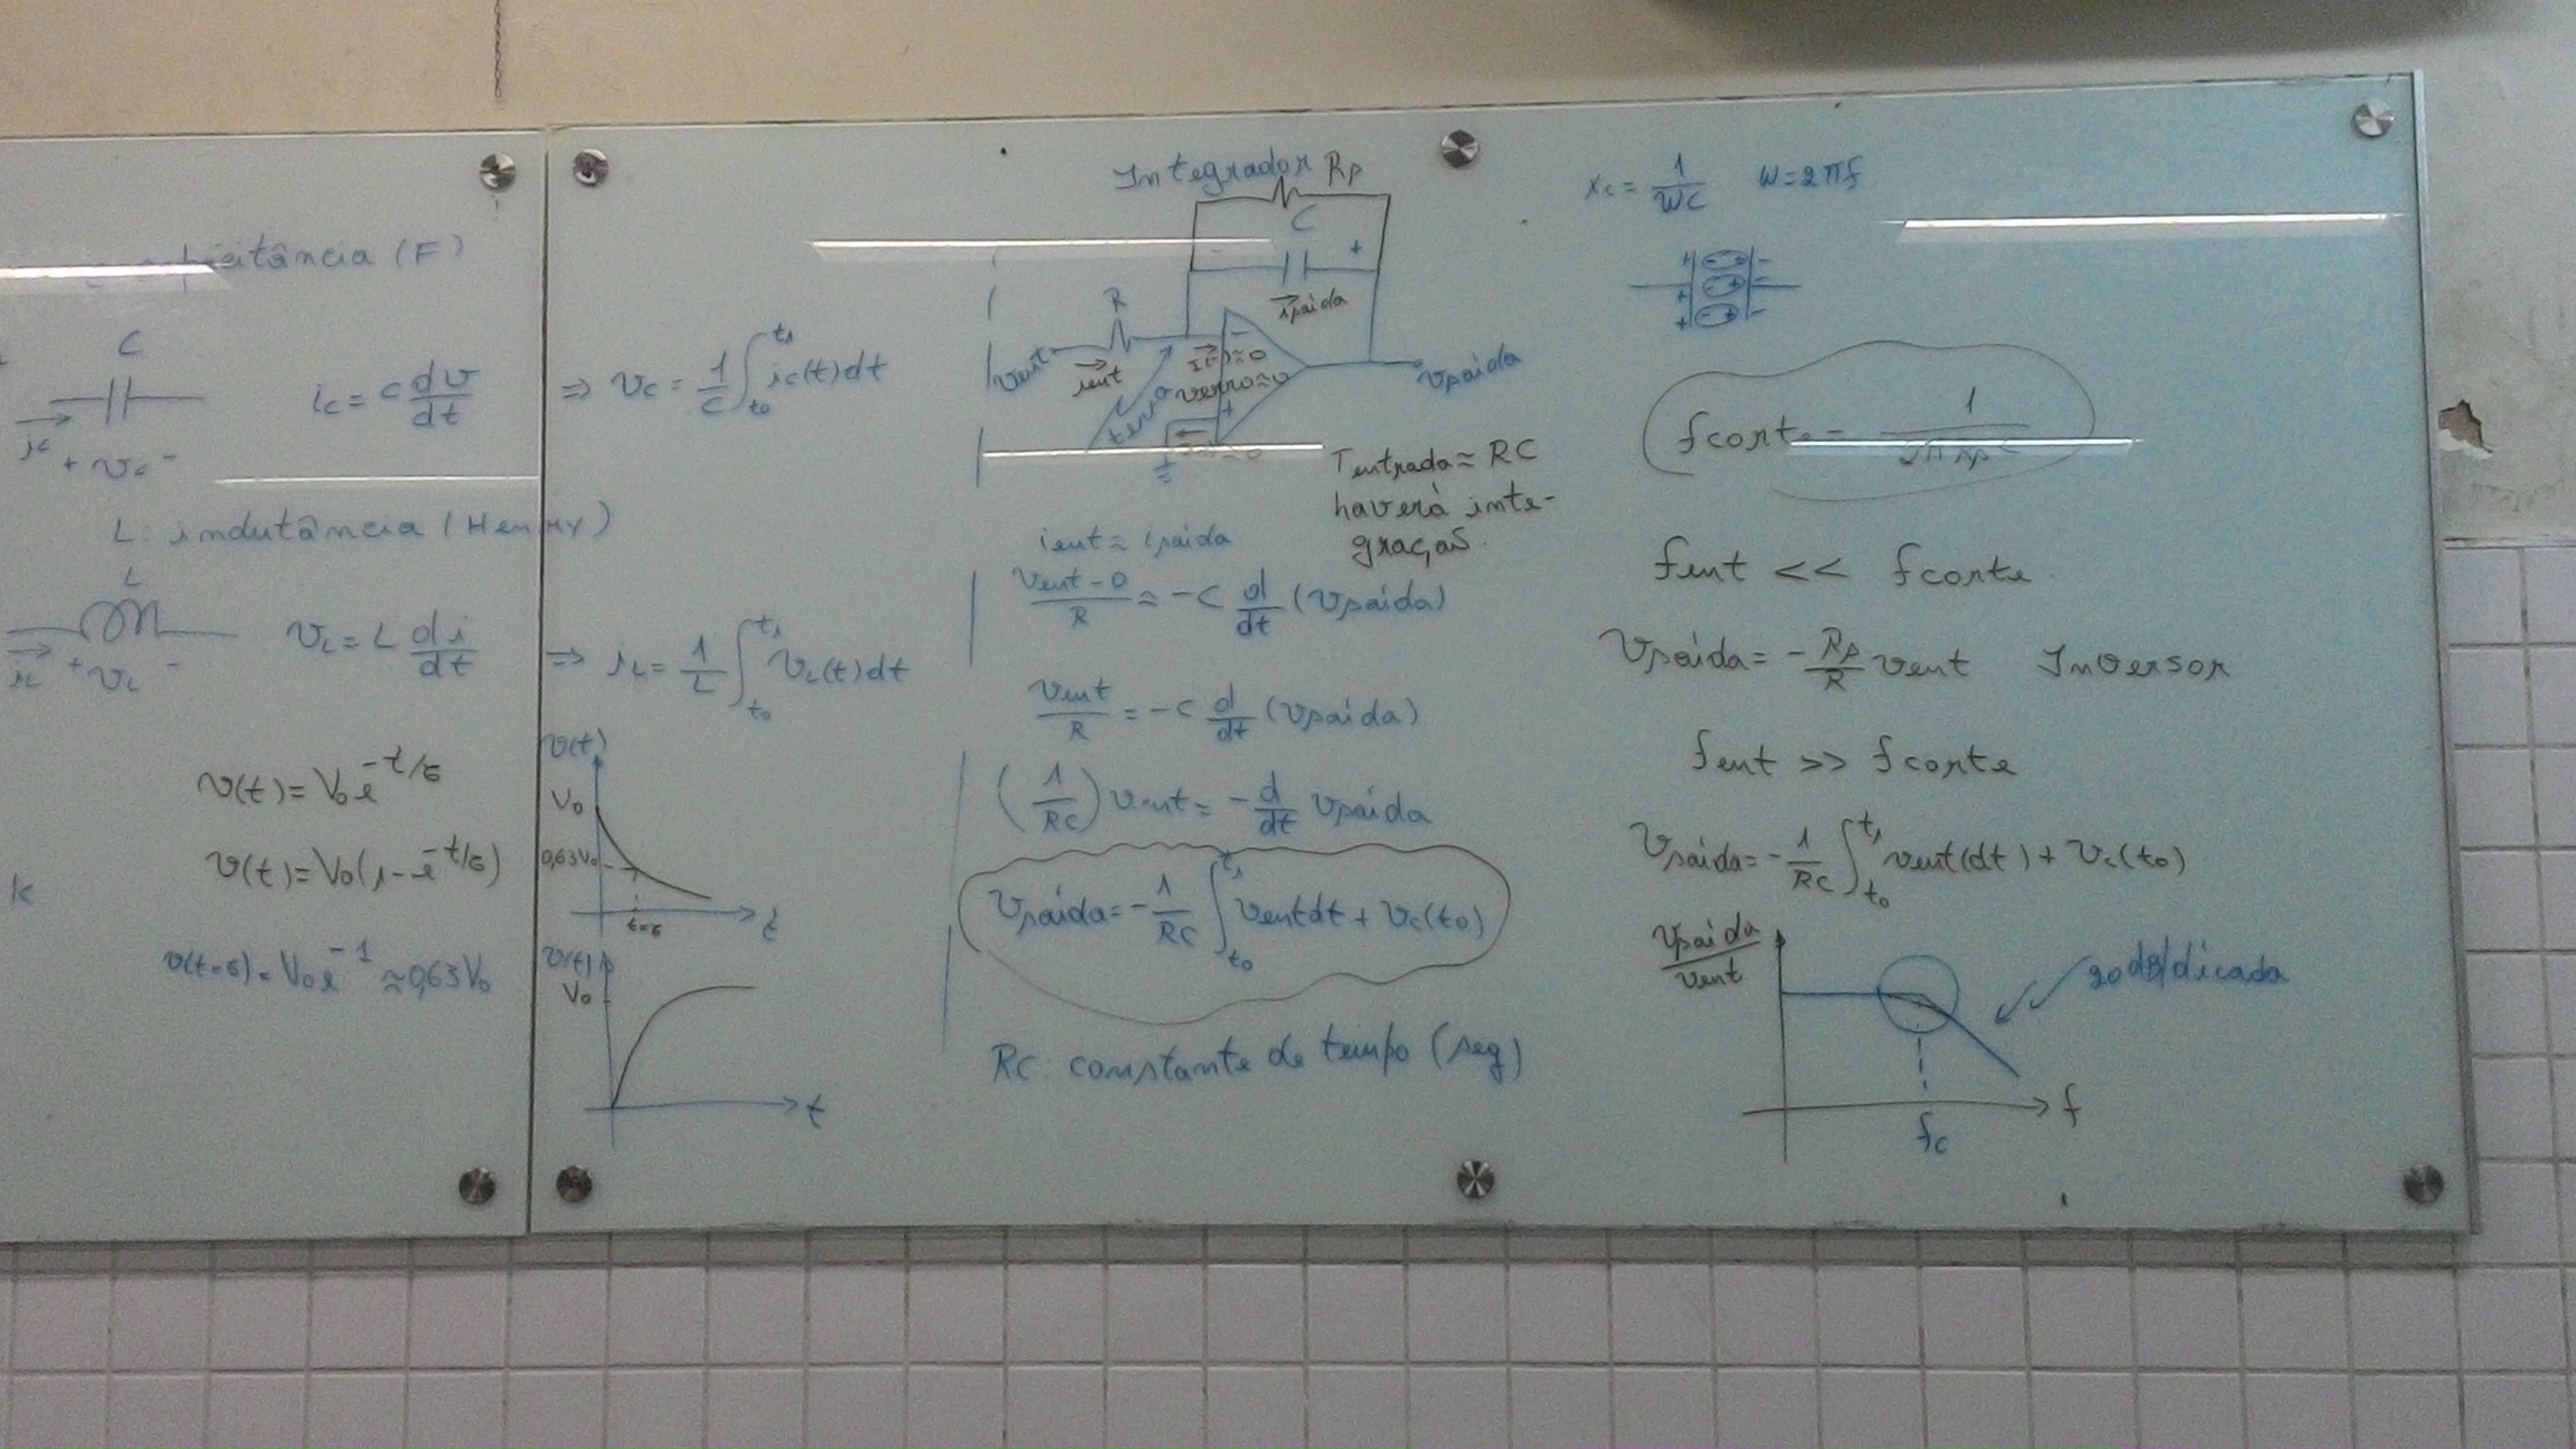 capacitância (F)
C
ic = C dv/dt
ic + vc -
⇒ vc = 1/C ∫t0 t1 ic(t)dt
L: indutância (Henry)
L
iL + vL -
vL = L di/dt
⇒ iL = 1/L ∫t0 t1 vL(t)dt
v(t) = V0 e^-t/τ
v(t) = V0(1-e^-t/τ)
k
v(t=τ) = V0 e^-1 ≈ 0,63V0
v(t)
V0
0,63V0
t=τ
t
v(t)
V0
t
Integrador Rp
C
- +
isaída
R
vent
ient
I(-)≈0
verro≈0
terra
-
+
vsaída
Tentrada ≈ RC
haverá inte-
gração.
ient ≈ isaída
vent - 0/R ≈ -C d/dt (vsaída)
vent/R = -C d/dt (vsaída)
(1/RC) vent = -d/dt vsaída
vsaída = -1/RC ∫t0 t1 vent dt + vc(t0)
RC: constante de tempo (seg)
xc = 1/WC W = 2πf
+ - + -
+ - + -
+ - + -
fcorte = 1/2πRpC
fent << fcorte
vsaída = -Rp/R vent Inversor
fent >> fcorte
vsaída = -1/RC ∫t0 t1 vent(dt) + vc(t0)
vsaída/vent
20dB/década
f
fc